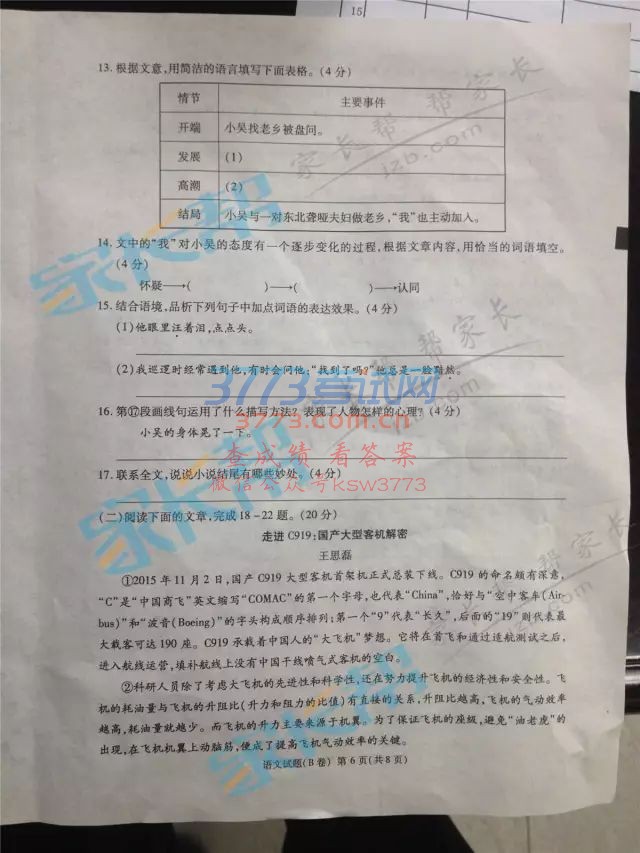 15
13. 根据文意,用简洁的语言填写下面表格。(4分)
情节 主要事件
开端 小吴找老乡被盘问。
发展 (1)
高潮 (2)
结局 小吴与一对东北聋哑夫妇做老乡,“我”也主动加入。
14. 文中的“我”对小吴的态度有一个逐步变化的过程,根据文章内容,用恰当的词语填空。
(4分)
怀疑→( )→( )→认同
15. 结合语境,品析下列句子中加点词语的表达效果。(4分)
(1)他眼里汪着泪,点点头。
(2)我巡逻时经常遇到他,有时会问他:“找到了吗?”他总是一脸黯然。
16. 第⑰段画线句运用了什么描写方法?表现了人物怎样的心理?(4分)
小吴的身体晃了一下。
17. 联系全文,说说小说结尾有哪些妙处。(4分)
(二)阅读下面的文章,完成18-22题。(20分)
走进C919:国产大型客机解密
王思磊
①2015年11月2日,国产C919大型客机首架机正式总装下线。C919的命名颇有深意,
“C”是“中国商飞”英文缩写“COMAC”的第一个字母,也代表“China”,恰好与“空中客车(Air-
bus)”和“波音(Boeing)”的字头构成顺序排列;第一个“9”代表“长久”,后面的“19”则代表最
大载客可达190座。C919承载着中国人的“大飞机”梦想。它将在首飞和通过适航测试之后,
进入航线运营,填补航线上没有中国干线喷气式客机的空白。
②科研人员除了考虑大飞机的先进性和科学性,还在努力提升飞机的经济性和安全性。飞
机的耗油量与飞机的升阻比(升力和阻力的比值)有直接的关系,升阻比越高,飞机的气动效率
越高,耗油量就越少。而飞机的升力主要来源于机翼。为了保证飞机的座级,避免“油老虎”的
出现,在飞机机翼上动脑筋,便成了提高飞机气动效率的关键。
语文试题(B卷) 第6页(共8页)
家长帮
家长帮
家长帮
家长帮 帮家长
jzb.com
3773考试网
3773.com.cn
查成绩 看答案
微信公众号ksw3773